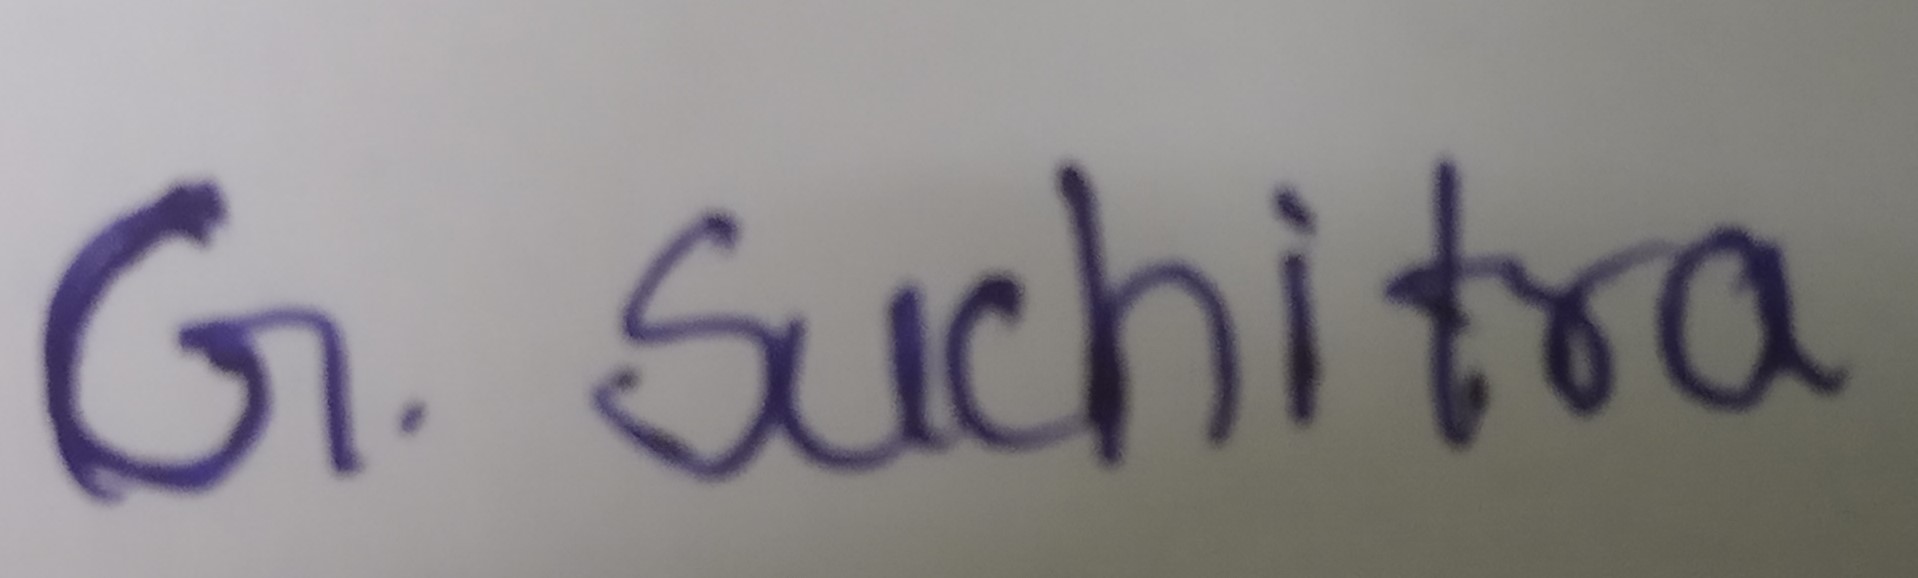 G. Suchitra